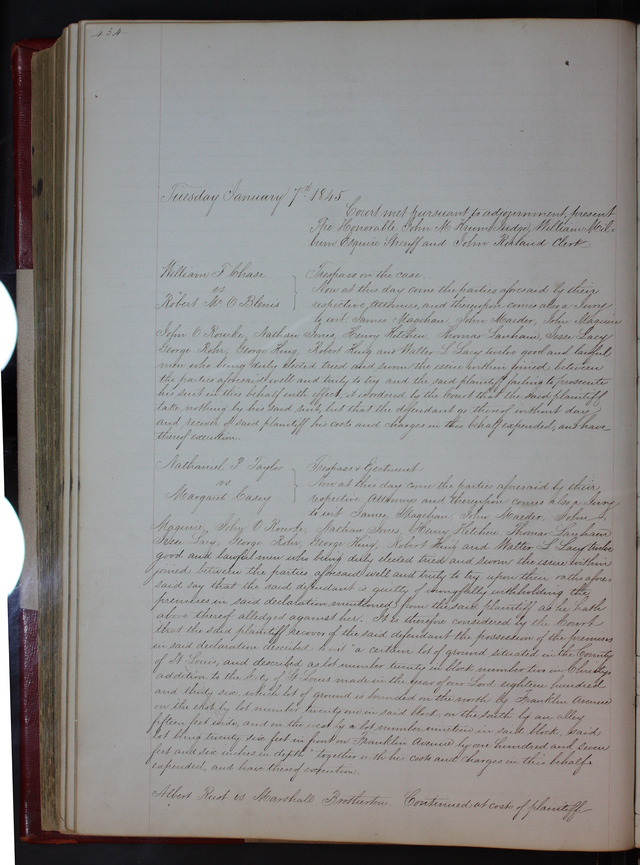 434
Tuesday January 7th 1845
Court met pursuant to adjournment, present
The Honorable John M. Krum Judge, William Mil-
burn Esquire Sheriff and John Ruland Clerk
William F. Chase
vs
Robert M. O Blenis
Trespass on the case.
Now at this day come the parties aforesaid by their
respective Attornies, and thereupon comes also a Jury
to wit. James Magehan, John Marder, John Maguire
John O Rourke, Nathan Jones, Henry Hitchen, Thomas Lanham, Jesse Lacy
George Rohr, George King, Robert King and Walter L Lacy twelve good and lawful
men who being duly elected tried and sworn the issue within joined between
the parties aforesaid well and truly to try and the said plaintiff failing to prosecute
his suit in this behalf with effect, it is ordered by the Court that the said plaintiff
take nothing by his said suit, but that the defendant go thereof without day
and recover of said plaintiff his costs and charges in this behalf expended, and have
thereof execution.
Nathaniel P. Taylor
vs
Margaret Casey
Trespass & Ejectment
Now at this day come the parties aforesaid by their
respective Attornies and thereupon comes also a Jury
to wit James Magehan, John Marder, John
Maguire, John O Rourke, Nathan Jones, Henry Hitchen, Thomas Lanham
Jesse Lacy, George Rohr, George King, Robert King and Walter L Lacy twelve
good and lawful men who being duly elected tried and sworn the issue within
joined between the parties aforesaid well and truly to try upon their oaths afore-
said say that the said defendant is guilty of wrongfully withholding the
premises in said declaration mentioned from the said plaintiff as he hath
above thereof alleged against her. It is therefore considered by the Court
that the said plaintiff recover of the said defendant the possession of the premises
in said declaration described to wit "a certain lot of ground situated in the County
of St Louis, and described as lot number twenty in block number two in Christy's
addition to the City of St Louis made in the year of our Lord eighteen hundred
and thirty six, which lot of ground is bounded on the north by Franklin Avenue
on the east by lot number twenty one in said block, on the south by an alley
fifteen feet wide, and on the west by a lot number nineteen in said block, said
lot being twenty six feet in front on Franklin Avenue by one hundred and seven
feet and six inches in depth" together with he costs and charges in this behalf
expended, and have thereof execution.
Albert Rust vs Marshall Brotherton. Continued at costs of plaintiff